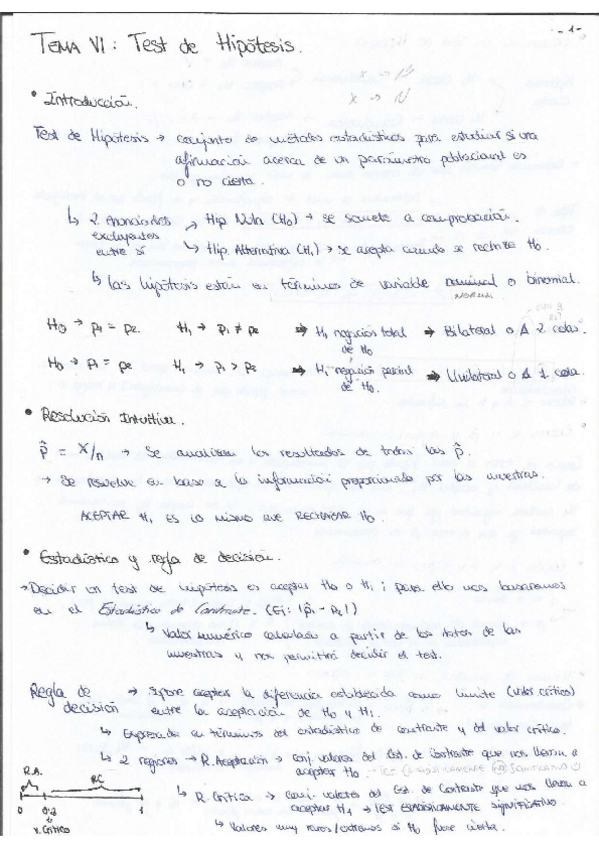 -1-
TEMA VI: Test de Hipótesis.
x → N
x → N
• Introducción.
Test de Hipótesis → conjunto de métodos estadísticos para estudiar si una
afirmación acerca de un parámetro poblacional es
o no cierta.
↳ 2 Enunciados → Hip Nula (H0) → se somete a comprobación.
excluyentes
entre sí ↳ Hip Alternativa (H1) → se acepta cuando se rechaza H0.
↳ Las hipótesis están en términos de variable nominal o binomial.
NORMAL
H0 → p1 = p2. H1 → p1 ≠ p2 ⇒ H1 negación total ⇒ Bilateral o A 2 colas.
de H0
H0 → p1 = p2 H1 → p1 > p2 ⇒ H1 negación parcial ⇒ Unilateral o A 1 cola.
de H0.
• Resolución Intuitiva.
p̂ = X/n → Se analizan los resultados de todas las p̂.
→ Se resuelve en base a la información proporcionada por las muestras.
ACEPTAR H1 ES LO MISMO QUE RECHAZAR H0.
• Estadístico y regla de decisión.
→ Decidir un test de hipótesis es aceptar H0 o H1; para ello nos basaremos
en el Estadístico de Contraste. (Ej: |p̂1 - p̂2|)
↳ Valor numérico calculado a partir de los datos de las
muestras y nos permitirá decidir el test.
Regla de → Supone aceptar la diferencia establecida como límite (valor crítico)
decisión entre la aceptación de H0 y H1.
↳ Expresada en términos del estadístico de contraste y del valor crítico.
↳ 2 regiones → R. Aceptación → conj. valores del Est. de Contraste que nos llevan a
aceptar H0
R.A. RC
↳ R. Crítica → conj. valores del Est. de Contraste que nos llevan a
aceptar H1 → TEST ESTADÍSTICAMENTE SIGNIFICATIVO.
0 1
V. Crítico
↳ Valores muy raros/extremos si H0 fuese cierta.